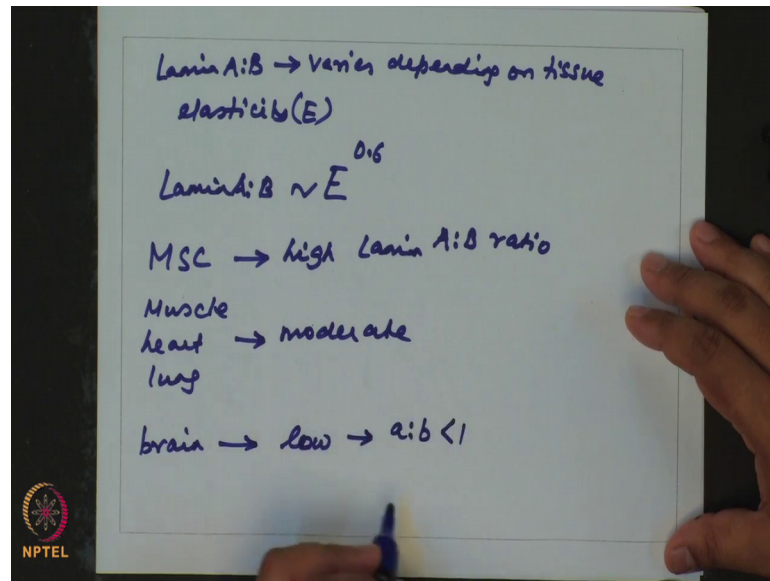 Lamin A:B → varies depending on tissue
elasticity (E)
Lamin A:B ~ E^0.6
MSC → high Lamin A:B ratio
Muscle
heart → moderate
lung
brain → low → a:b < 1
NPTEL